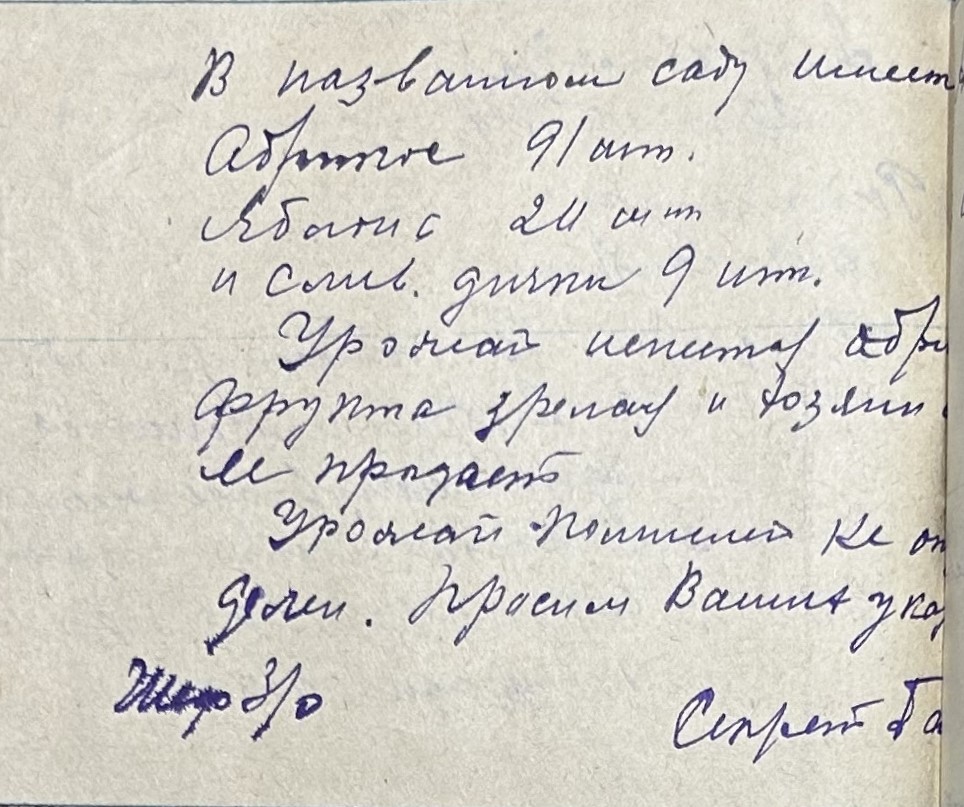 В названном саду имеет
Абрикос 91 шт.
Яблонь 24 шт
и слив. дички 9 шт.
Урожай абри
Фрукта зрелая и хозяин
не продает
Урожай Не оп
делен. Просим Ваших указ
З/о
Секрет